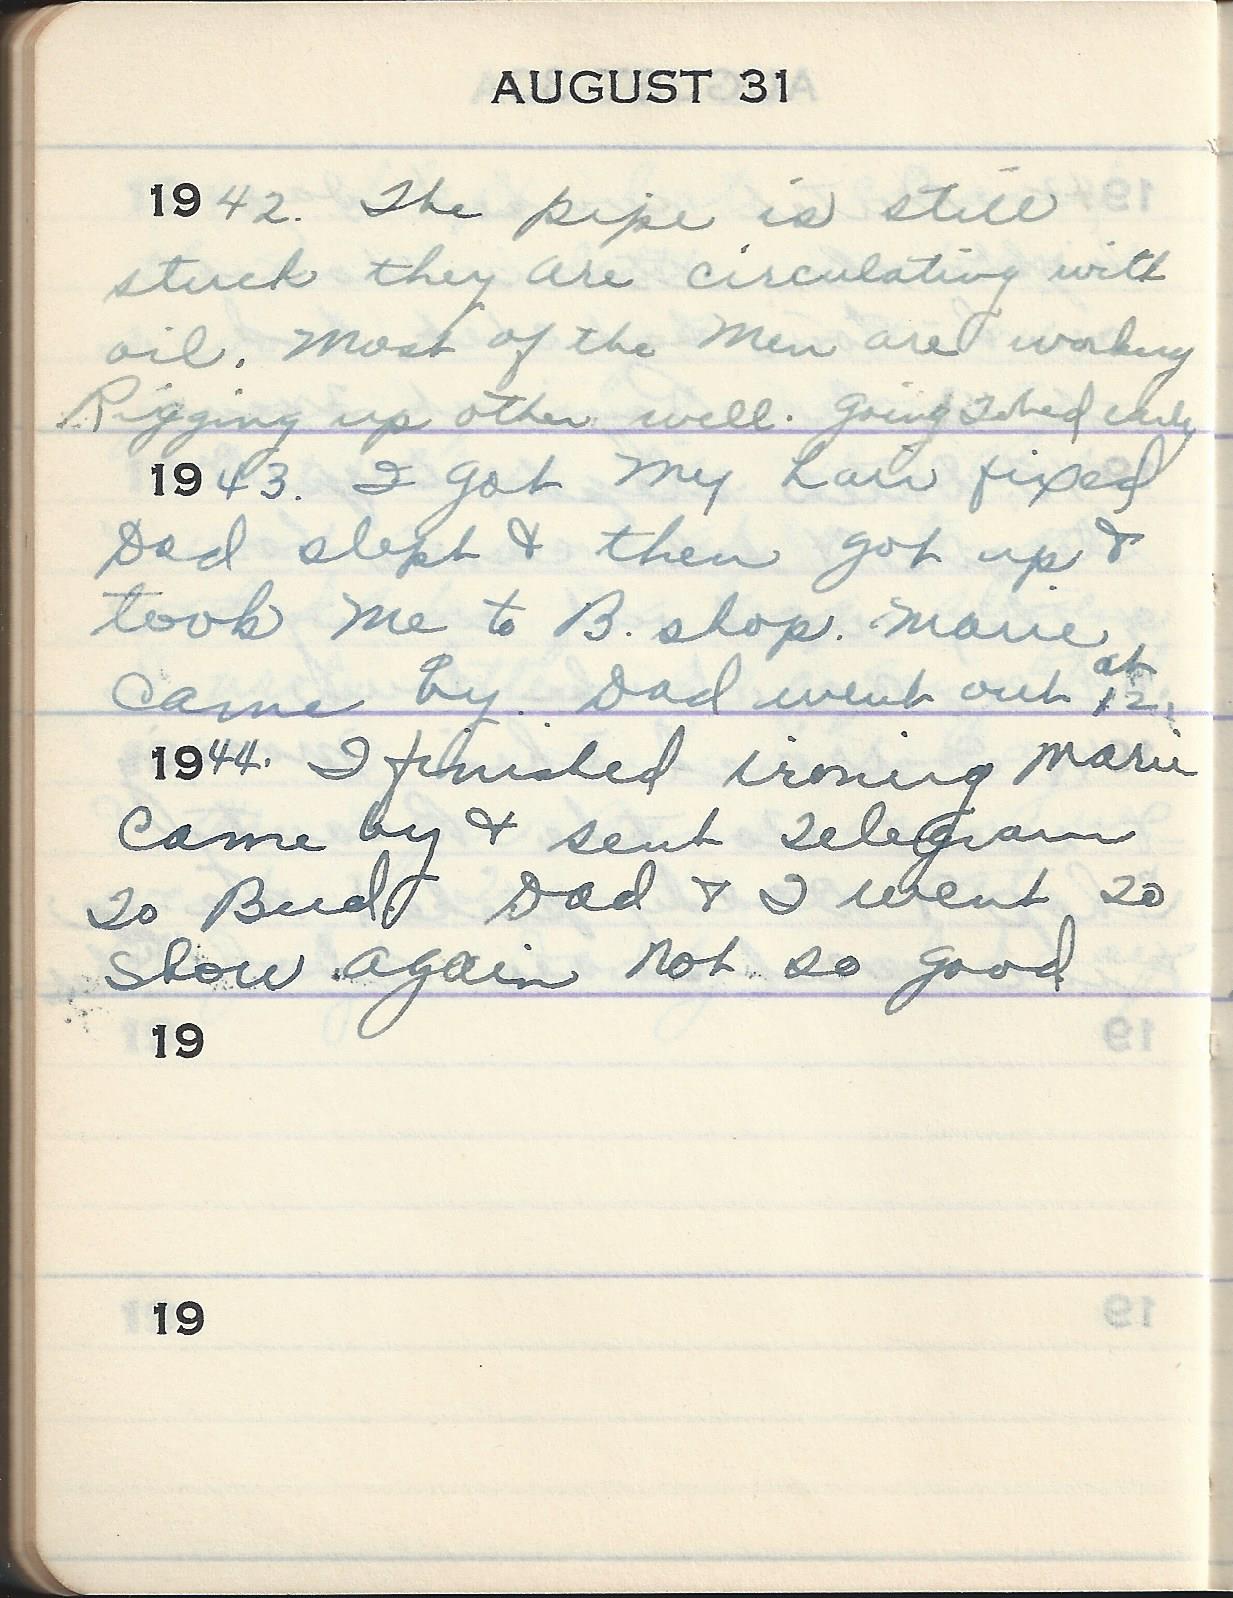 AUGUST 31
1942. The pipe is still
stuck they are circulating with
oil. Most of the Men are working
Rigging up other well. Going to bed early
1943. I got My hair fixed
Dad slept & then got up &
took Me to B. shop. Marie
came by. Dad went out at 12.
1944. I finished ironing Marie
came by & sent telegram
to Bud, Dad & I went to
show again not so good
19
19